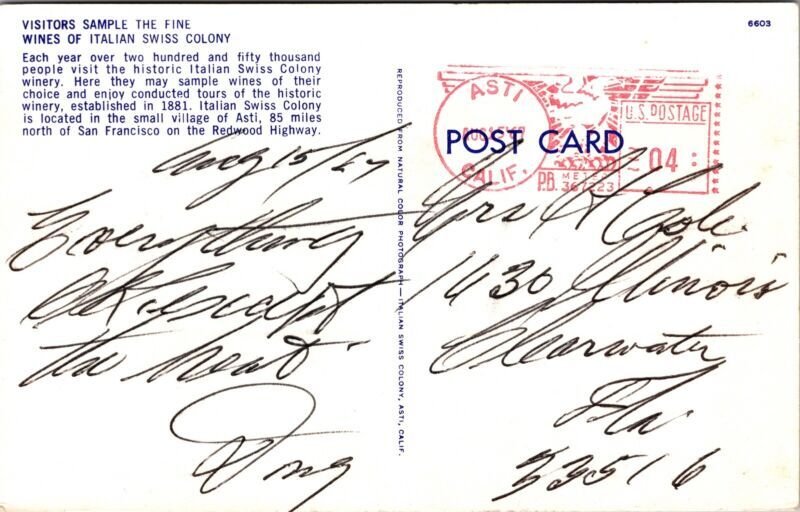 VISITORS SAMPLE THE FINE
WINES OF ITALIAN SWISS COLONY
Each year over two hundred and fifty thousand
people visit the historic Italian Swiss Colony
winery. Here they may sample wines of their
choice and enjoy conducted tours of the historic
winery, established in 1881. Italian Swiss Colony
is located in the small village of Asti, 85 miles
north of San Francisco on the Redwood Highway.
Aug 15/67
Everything
O.K. except
the heat
REPRODUCED FROM NATURAL COLOR PHOTOGRAPH—ITALIAN SWISS COLONY, ASTI, CALIF.
6603
ASTI
CALIF.
U.S. POSTAGE
04
P.B. METER
367223
POST CARD
Mrs H Cole
1430 Illinois
Clearwater
Fla
33516